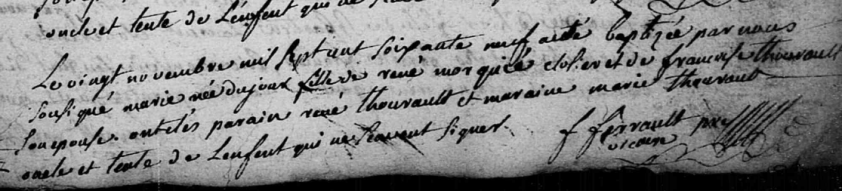 oncle et tente de Lenfent qui ne
Le vingt novembre mil sept cent soixante neuf a été baptizée par nous
sousigné marie née du jour fille de rené morquié closier et de francoise thourault
son epouse. ont etés parain rené thourault et maraine marie thourault
oncle et tente de Lenfent qui ne scavent signer
f ferrault ptre
vicaire